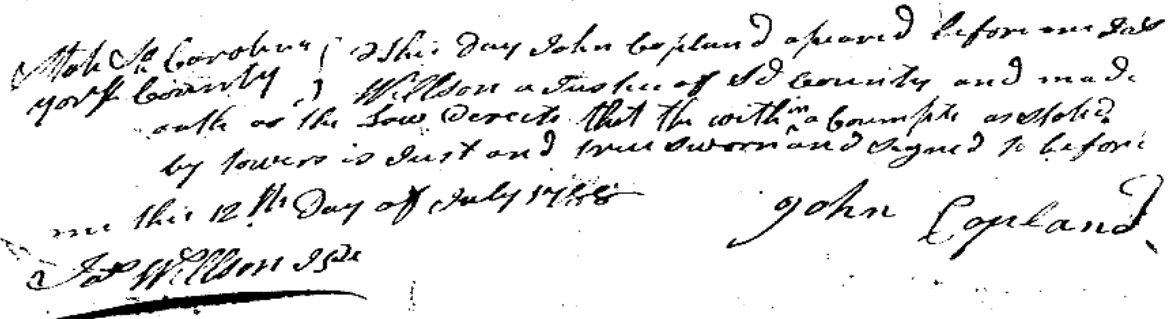 State So Carolina } This Day John Copland apeared before me Jas
York County } Willson a Justice of Sd County and made
oath as the Law Derects that the within a Coumpte as Stated
by towers is Just and true Sworn and Signed to before
me this 12th Day of July 1788
John Copland
Jas Willson